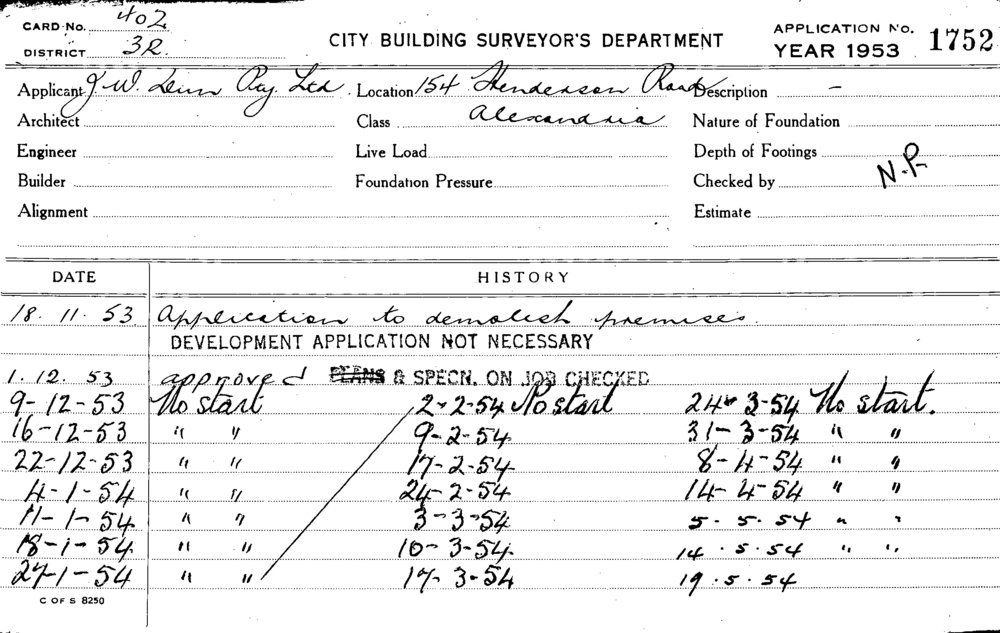 CARD No. 402
DISTRICT 3R.
CITY BUILDING SURVEYOR'S DEPARTMENT
APPLICATION No. 1752
YEAR 1953
Applicant J. W. Pty. Ltd. Location 154 Henderson Road Description –
Architect Class Alexandria Nature of Foundation
Engineer Live Load Depth of Footings
Builder Foundation Pressure Checked by N.P.
Alignment Estimate
DATE HISTORY
18. 11. 53 Application to demolish premises.
DEVELOPMENT APPLICATION NOT NECESSARY
1. 12. 53 approved PLANS & SPECN. ON JOB CHECKED
9-12-53 No start 2-2-54 No start 24-3-54 No start.
16-12-53 " " 9-2-54 31-3-54 " "
22-12-53 " " 17-2-54 8-4-54 " "
4-1-54 " " 24-2-54 14-4-54 " "
11-1-54 " " 3-3-54 5. 5. 54 " "
18-1-54 " " 10-3-54. 14. 5. 54 " "
27-1-54 " " 17-3-54 19. 5. 54
C OF S 8250